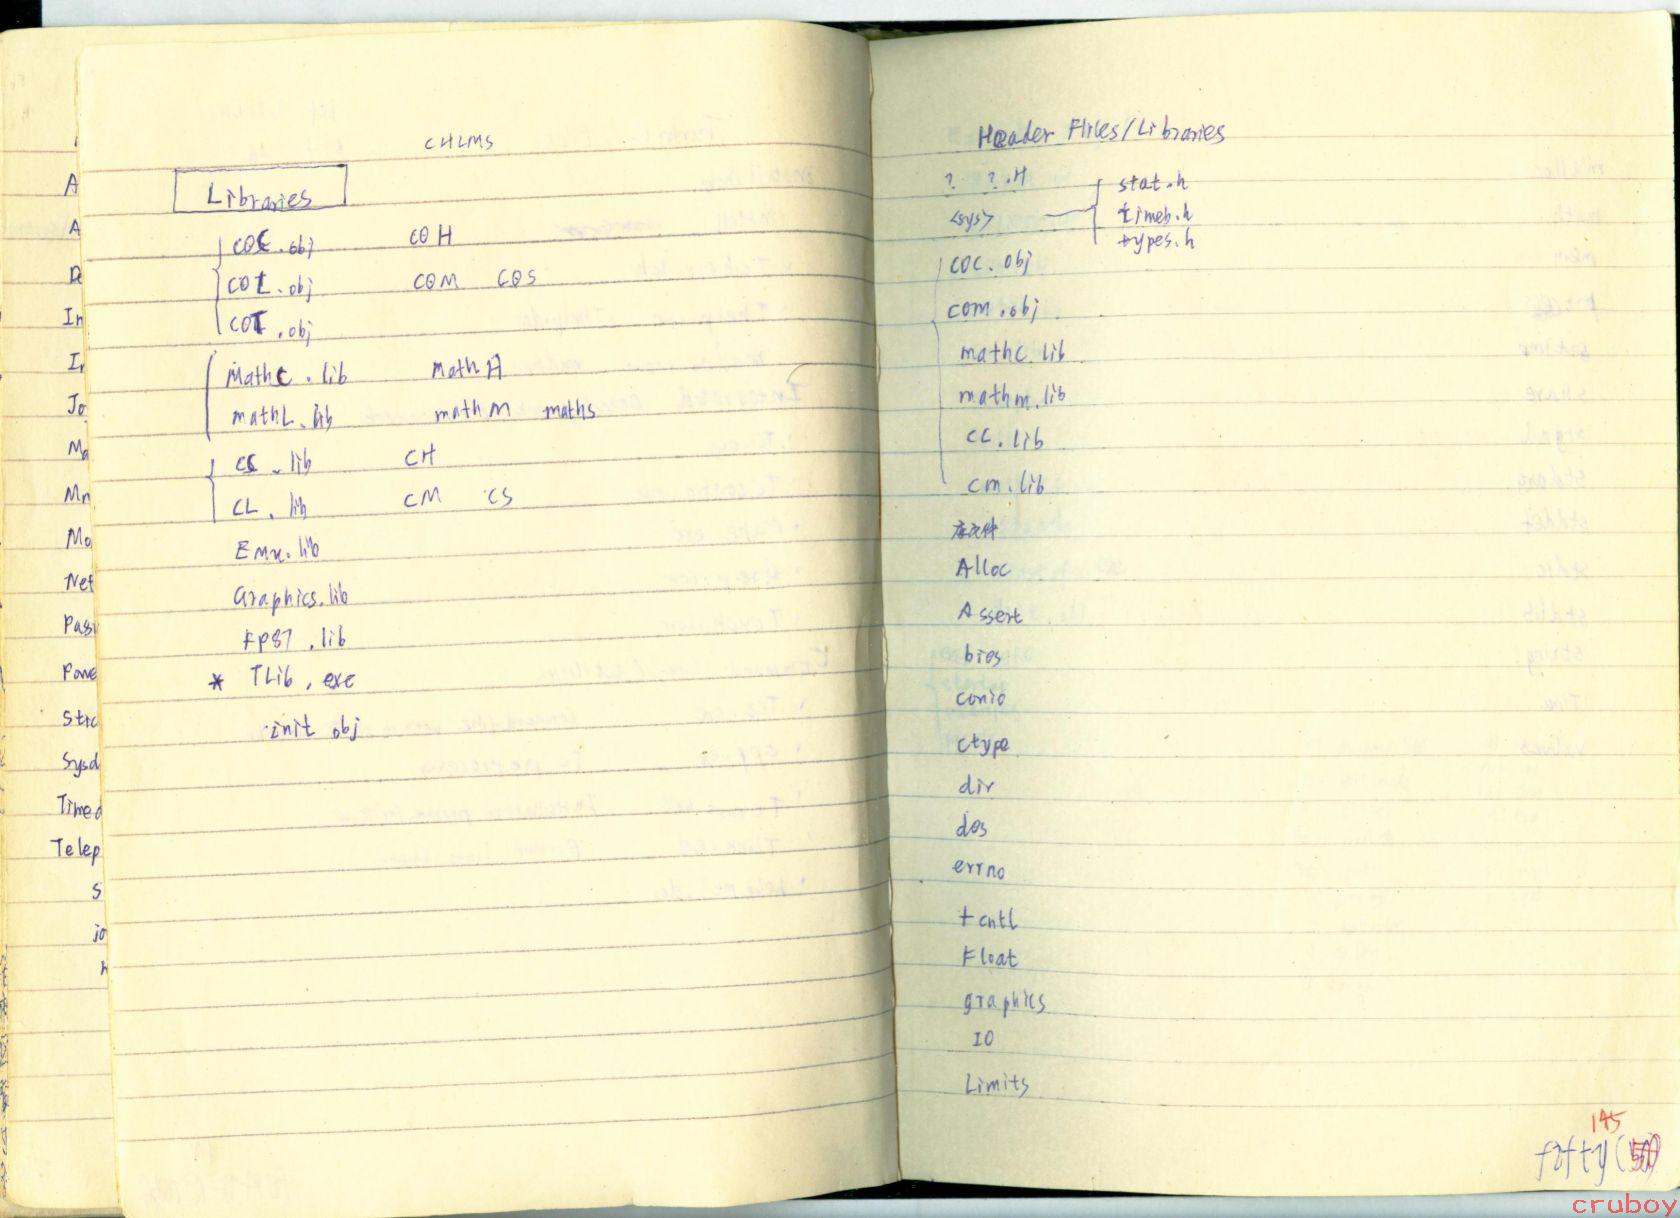 A
A
De
In
I
Jo
Ma
Mn
Mo
Net
Pass
Powe
Stac
Sysd
Timed
Telep
S
jo
CHLMS
Libraries
C0C.obj C0H
C0L.obj C0M C0S
C0T.obj
Mathc.lib MathH
mathL.lib mathM maths
CC.lib CH
CL.lib CM CS
Emu.lib
Graphics.lib
FP87.lib
* TLib.exe
init obj
Header Files/Libraries
? ?.H stat.h
<sys> timeb.h
types.h
C0C.obj
C0m.obj
mathc.lib
mathm.lib
CC.lib
cm.lib
库文件
Alloc
Assert
bios
conio
ctype
dir
dos
errno
fcntl
Float
graphics
IO
Limits
145
fifty(50)
cruboy